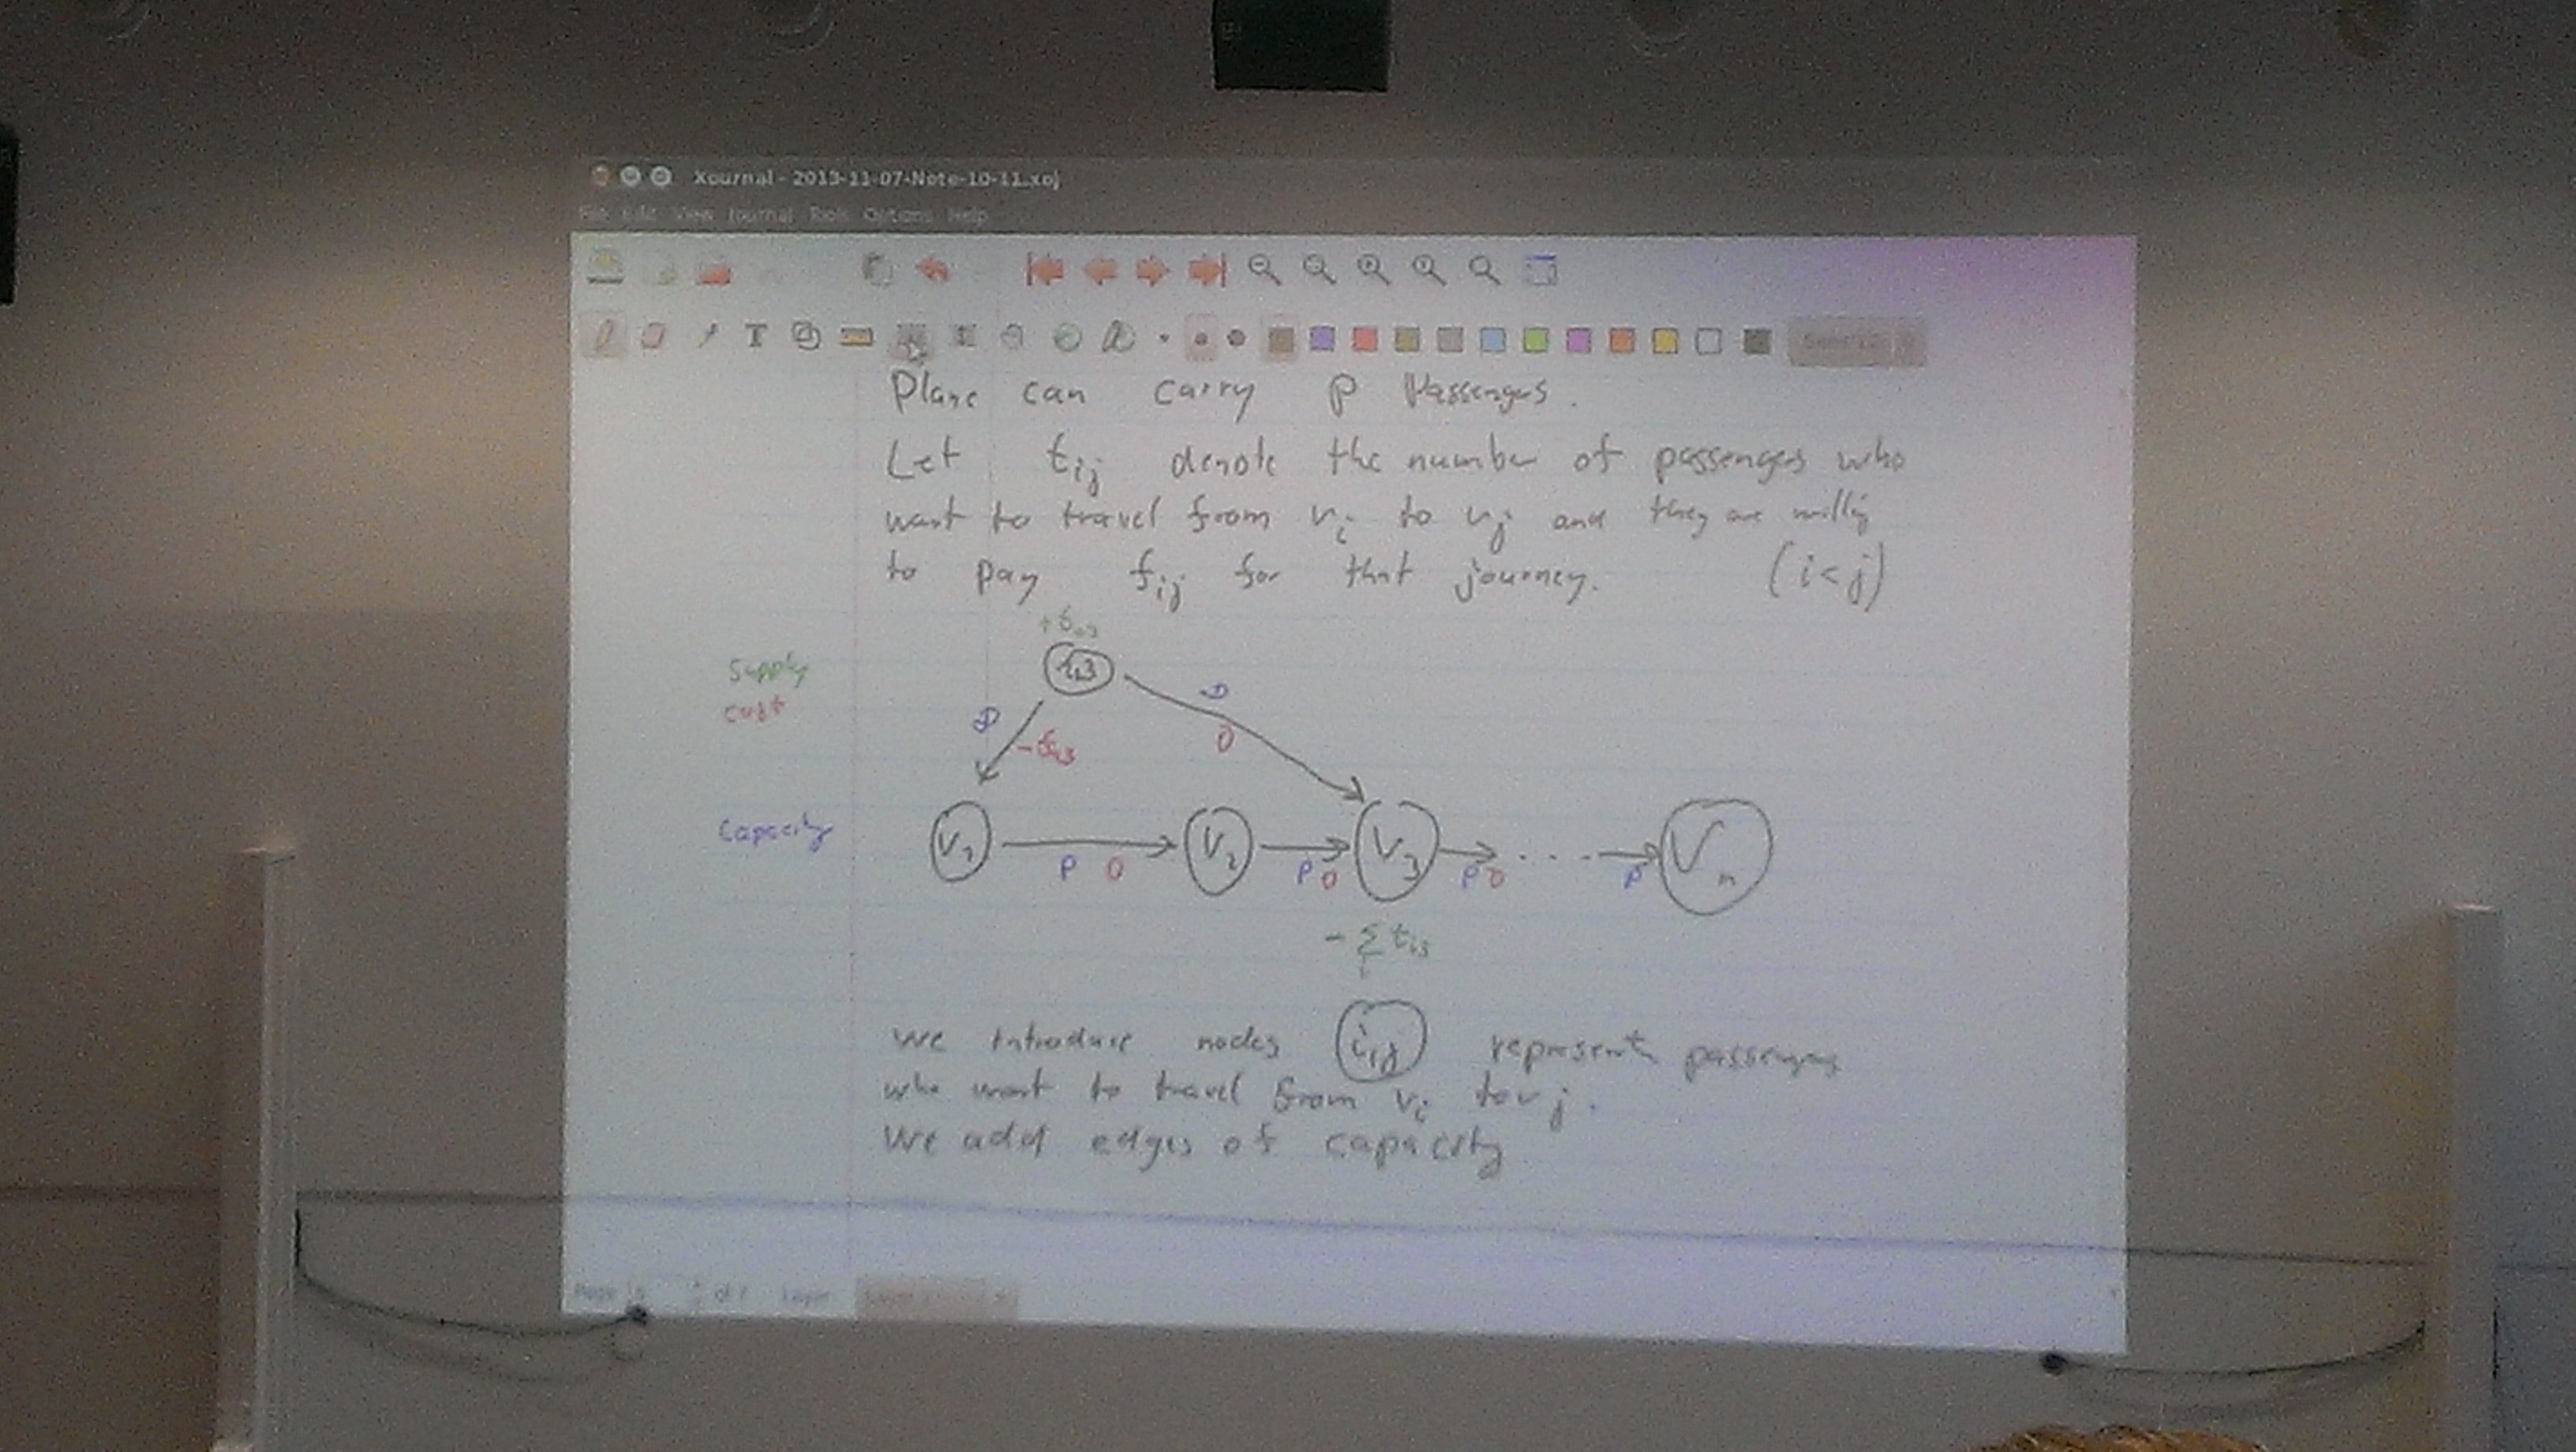 Xournal - 2013-11-07-Note-10-11.xoj
File Edit View Journal Tools Options Help
Plane can carry p Passengers.
Let t_ij denote the number of passengers who
want to travel from v_i to v_j and they are willig
to pay f_ij for that journey. (i<j)
Supply
cost
∞
0
∞
Capacity
V_1
V_2
V_3
V_n
p 0
p 0
p 0
p
- Σ_i t_i3
We introduce nodes i,j represent passengers
who want to travel from v_i to v_j.
We add edges of capacity
Page of 7 Layer